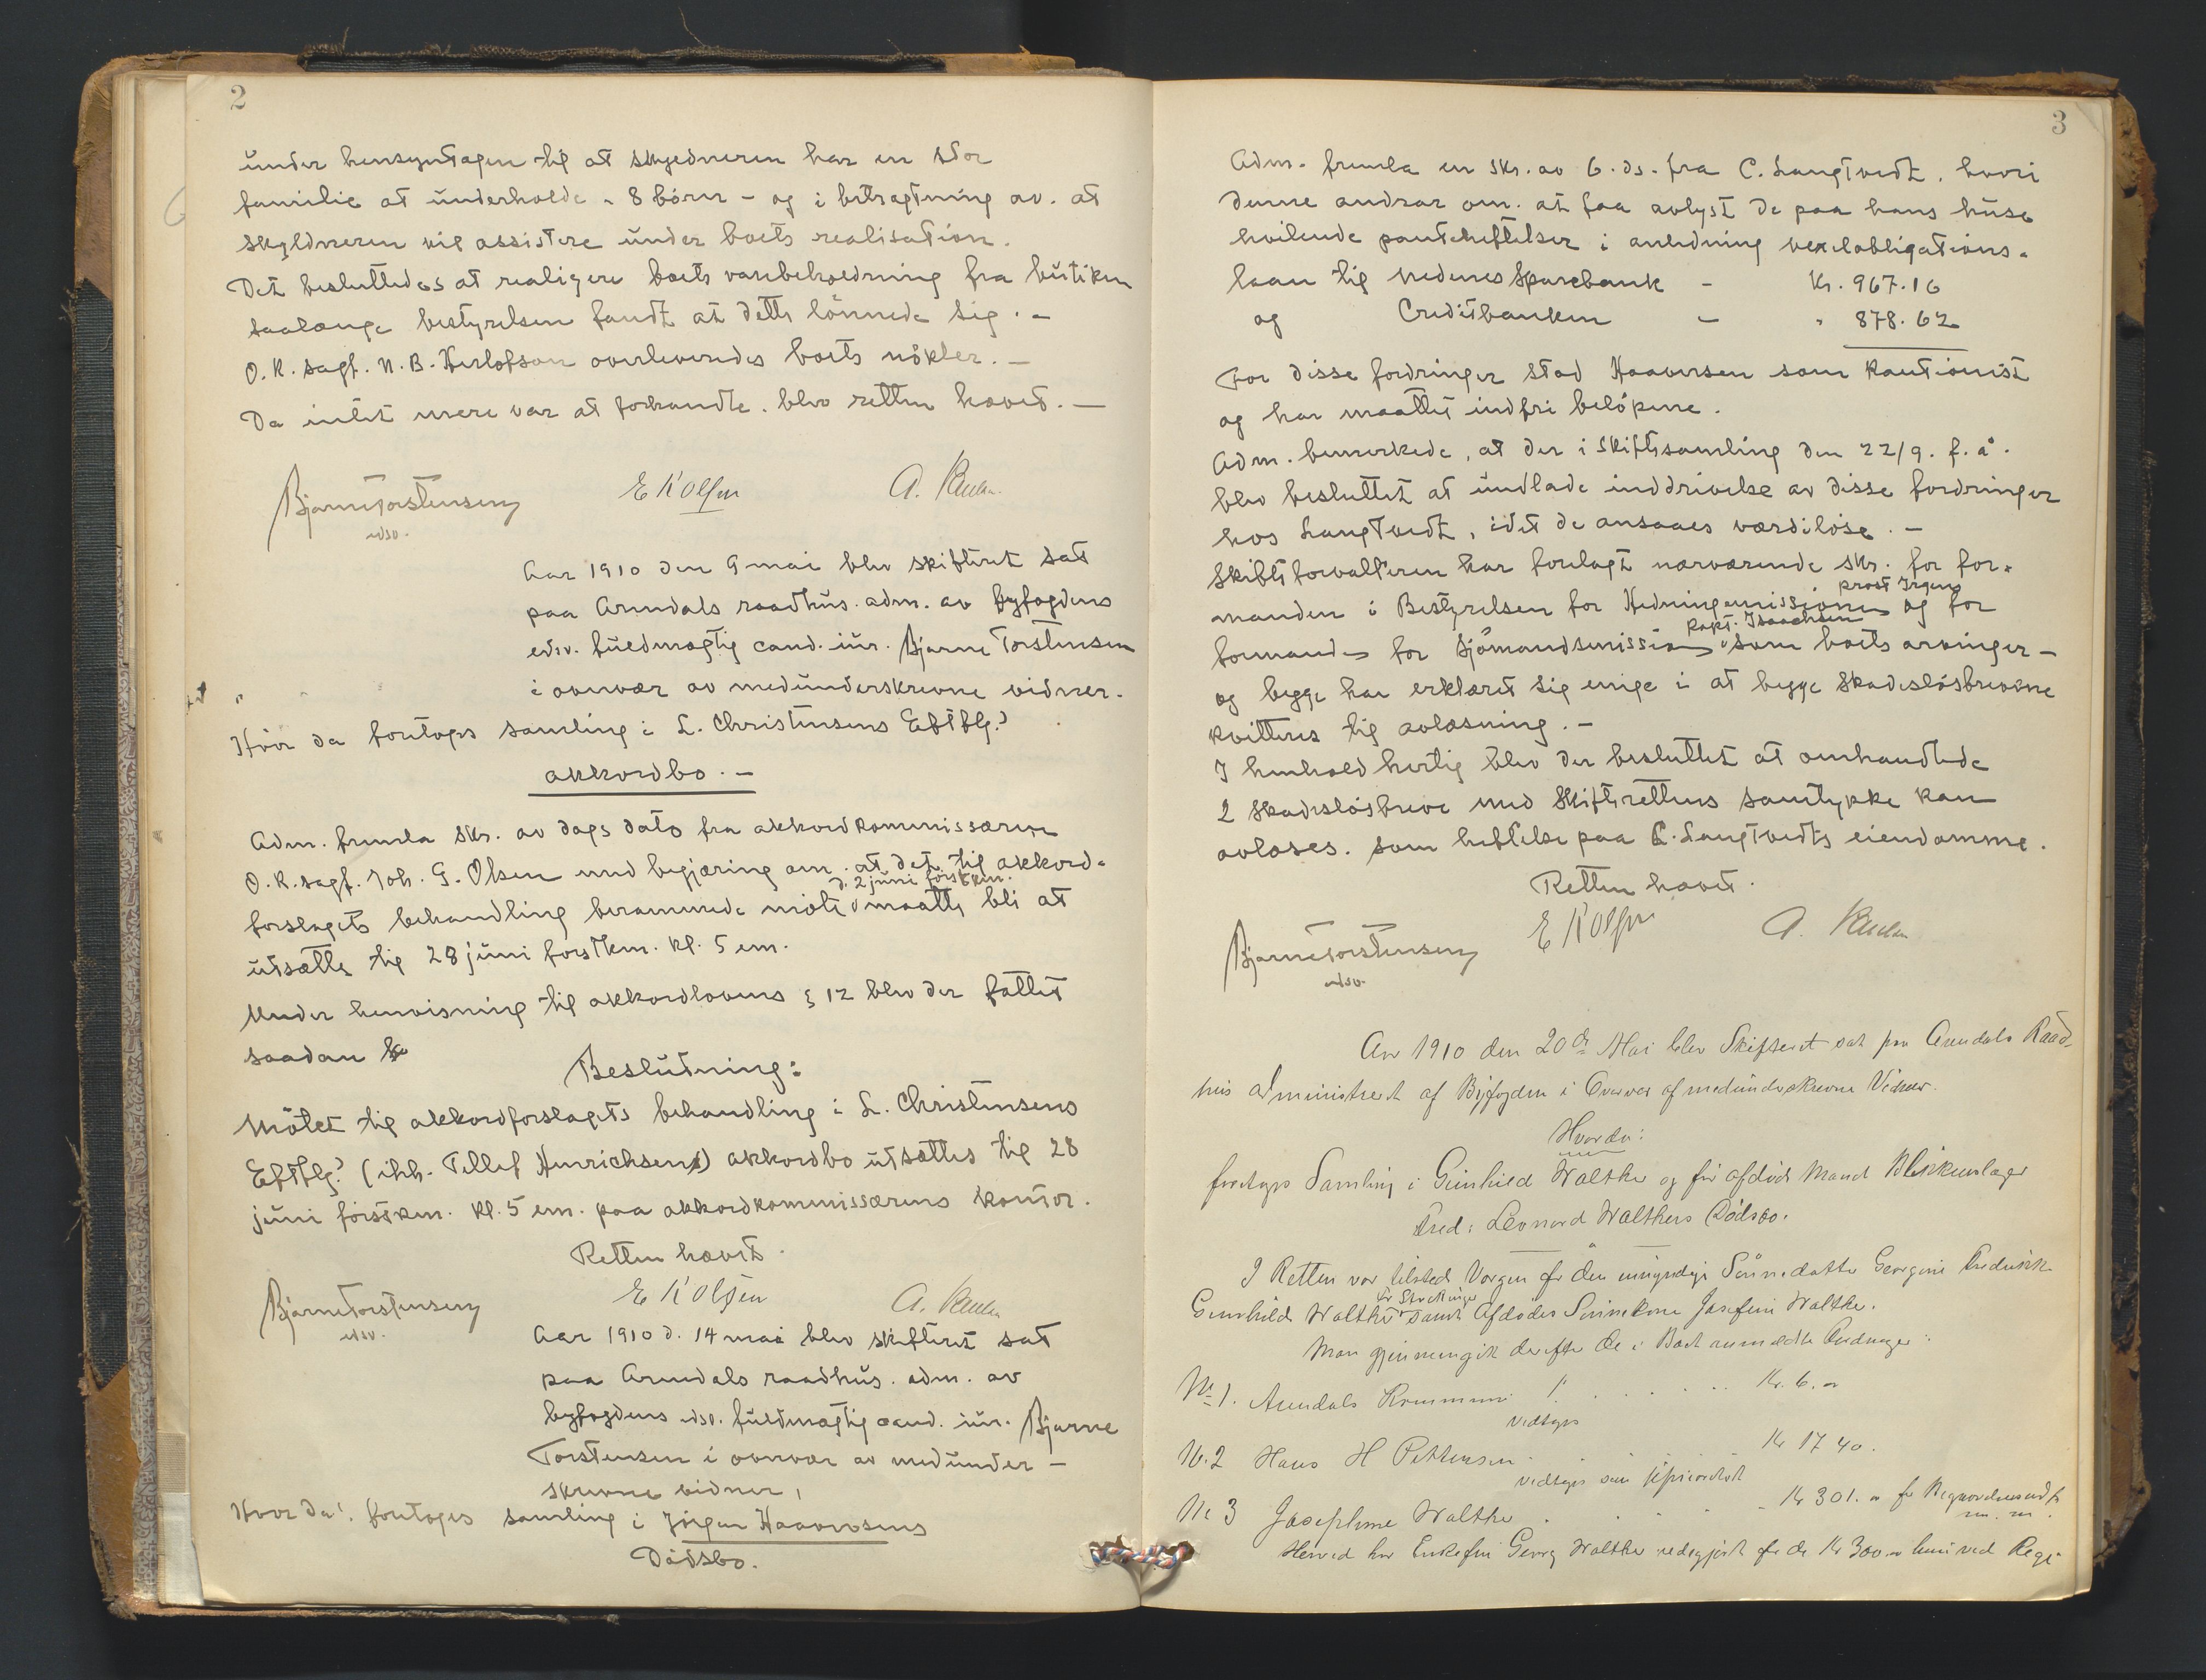 2
under hensyntagen til at skyldneren har en stor
familie at underholde - 8 börn - og i betragtning av. at
skyldneren vil assistere under boets realisation.
Det besluttedes at realisere boets varebeholdning fra butiken
saalænge bestyrelsen fandt at dette lönnede sig. -
O. R. sagf. N. B. Herlofson overleveredes boets nökler. -
Da intet mere var at forhandle. blev retten hævet. -
Bjarne Torstensen E K Olsen A.
edsv.
Aar 1910 den 9 mai blev skifteret sat
paa Arendals raadhus. adm. av byfogdens
edsv. fuldmægtig cand. jur. Bjarne Torstensen
i overvær av medunderskrevne vidner.
Hvor da foretoges samling i L. Christensens Eftflg.s
akkordbo. -
Adm. fremla skr. av dags dato fra akkordkommissæren
O. R. sagf. Joh. G. Olsen med begjæring om. at det til akkord-
d. 2 juni förstkm.
forslagets behandling berammede möte maatte bli at
utsætte til 28 juni förstkm. kl. 5 em.
Under henvisning til akkordlovens § 12 blev der fattet
saadan
Beslutning:
Mötet til akkordforslagets behandling i L. Christensens
Eftflg.s (ihh. Tellef Henrichsen) akkordbo utsættes til 28
juni förstkm. kl. 5 em. paa akkordkommissærens kontor.
Retten hævet.
Bjarne Torstensen E K Olsen A.
edsv.
Aar 1910 d. 14 mai blev skifteret sat
paa Arendals raadhus. adm. av
byfogdens edsv. fuldmægtig cand. jur. Bjarne
Torstensen i overvær av medunder-
skrevne vidner,
Hvor da! foretoges samling i Jörgen Haavorsens
Dödsbo.
3
Adm. fremla en skr. av 6. ds. fra C. Langtvedt. hvori
denne andrar om. at faa avlyst de paa hans huse
hvilende panteheftelser i anledning vexelobligations-
laan til Nedenes Sparebank - Kr. 967.16
og Creditbanken - " 878.62
For disse fordringer stod Haavorsen som kautionist
og har maattet indfri belöpene.
Adm. bemerkede, at der i skiftesamling den 22/9. f. å.
blev besluttet at undlade inddrivelse av disse fordringer
hos Langtvedt, idet de ansaaes værdilöse. -
Skifteforvalteren har forelagt nærværende skr. for for-
prost Irgens
manden i Bestyrelsen for Hedningemissionen og for
kapt. Isaachsen
formanden for Sjömandsmission som boets arvinger -
og begge har erklæret sig enige i at begge skadeslösbrevene
kvitteres til avlæsning. -
I henhold hertil blev der besluttet at omhandlede
2 skadeslösbreve med skifterettens samtykke kan
avlæses. som heftelse paa C. Langtvedts eiendomme.
Retten hævet.
Bjarne Torstensen E K Olsen A.
edsv.
Aar 1910 den 20de Mai blev Skifteret sat paa Arendals Raad-
hus administreret af Byfogden i Overvær af medunderskrevne Vidner.
Hvorda:
foretoges Samling i Gunhild Walther og før afdöde Mand Blikkenslager
Fred: Leonard Walthers Dödsbo.
I Retten var tilstede Værgen for den umyndige Sönnedatter Georgine Fredrikke
Gunhild Walther samt Afdödes Sönnekone Josefine Walther.
Man gjennemgik derefter de i Boet anmeldte Fordringer:
No 1. Arendals Kommune Kr. 6. -
vedtoges
No. 2 Hans H Pettersen Kr 17 40.
vedtoges som uprioriteret
No 3 Josephine Walther Kr 301. - for Begravelsesudg.
m. m.
Herved har Enkefru Georg Walther redegjort for de Kr 300 - hun ved Regi-